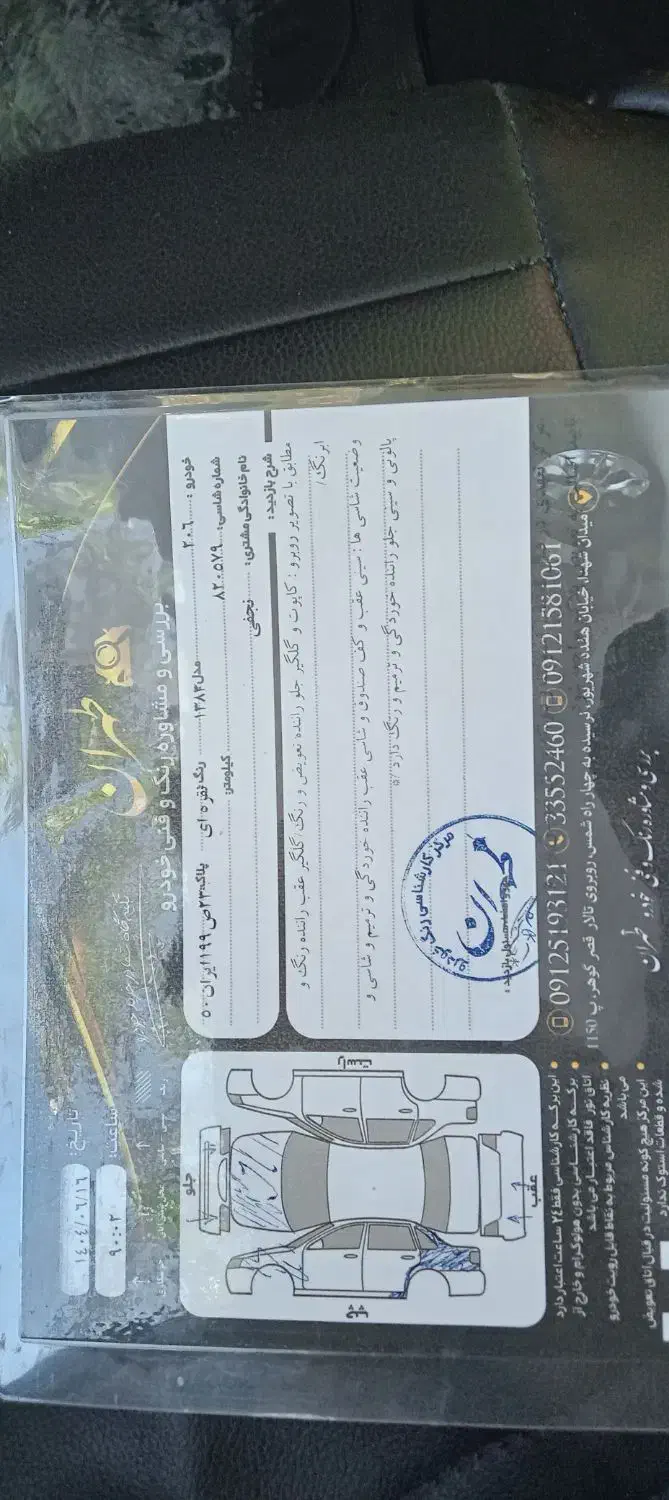 طهران
بررسی و مشاوره رنگ و فنی خودرو
تاریخ: ۱۴۰۴/۰۶/۱۶
ساعت:
خودرو: ۲۰۶ مدل ۱۳۸۳ رنگ نقره ای پلاک ۲۳ص۱۹۹ ایران۵۰
شماره شاسی: ۸۲۰۵۷۹ کیلومتر:
نام خانوادگی مشتری: نجفی
شرح بازدید:
مطابق با تصویر روبرو : کاپوت و گلگیر جلو راننده تعویض و رنگ/گلگیر عقب راننده رنگ و
ابرنگ/
وضعیت شاسی ها: سینی عقب و کف صندوق و شاسی عقب راننده خوردگی و ترمیم و شاسی و
پالونی و سینی جلو راننده خوردگی و ترمیم و رنگ دارد
مرکز کارشناسی رنگ خودرو
طهران
جلو
راست
چپ
عقب
09125193121 33552460 09121581061
میدان شهدا، خیابان هفده شهریور، نرسیده به چهار راه شمس، روبروی تالار قصر گوهر، پ 1150
این برگه کارشناسی فقط ۲۴ ساعت اعتبار دارد
برگه کارشناسی بدون مهر و
اتاق نور فاقد اعتبار می باشد
نظریه کارشناس مربوط به نقاط قابل رویت خودرو
می باشد
این مرکز هیچ گونه مسئولیت در قبال اتاق تعویض